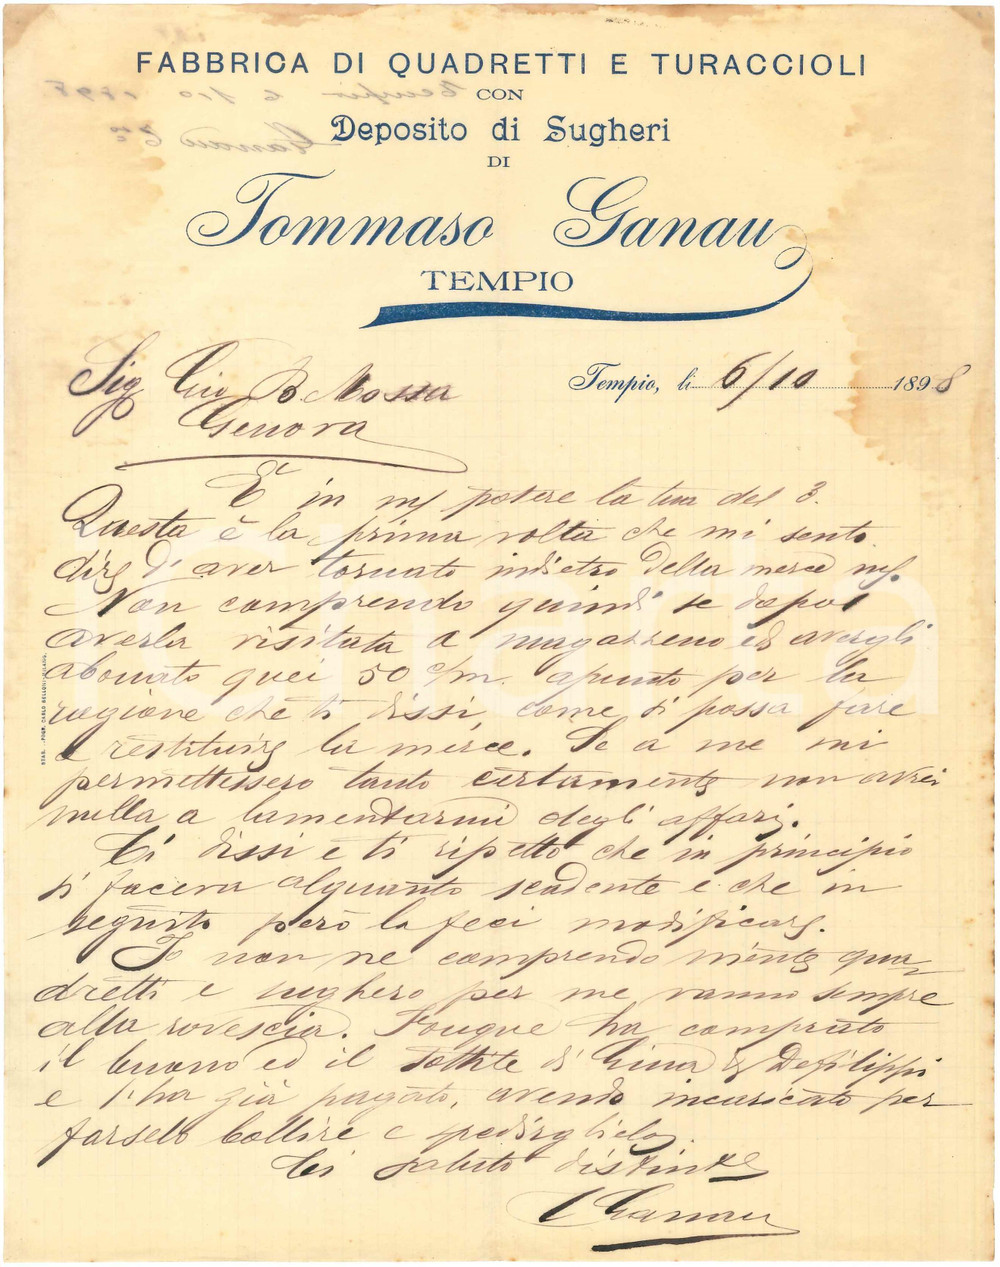 FABBRICA DI QUADRETTI E TURACCIOLI
CON
Deposito di Sugheri
DI
Tommaso Ganau
TEMPIO
Tempio, li 6/10 1898
Sig Gio B. Mossa
Genova
È in m/ potere la tua del 3.
Questa è la prima volta che mi sento
dire d'aver tornato indietro della merce
Non comprendo quindi se dopo
averla visitata a magazzeno ed avergli
abonato quei 50 c/m. apunto per la
ragione che ti dissi, come si possa fare
a restituire la merce. Se a me mi
permettessero tanto certamente non avrei
nulla a lamentarmi degli affari.
Ti dissi e ti ripetto che in principio
si faceva alquanto scadente e che in
seguito però la feci modificare.
Io non ne comprendo niente qua-
dretti e sughero per me vanno sempre
alla rovescia. ha comprato
il buono ed il sottile di Defilippi
e l'ha già pagato, avendo incaricato per
farselo bollire e
Ti saluto distinte
Ganau
STAB. CARLO BELLONI MILANO